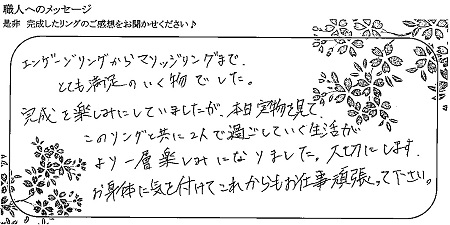 職人へのメッセージ
是非 完成したリングのご感想をお聞かせください♪
エンゲージリングからマリッジリングまで、
とても満足のいく物でした。
完成を楽しみにしていましたが、本日実物を見て、
このリングと共に2人で過ごしていく生活が
より一層楽しみになりました。大切にします。
お身体に気を付けてこれからもお仕事頑張って下さい。